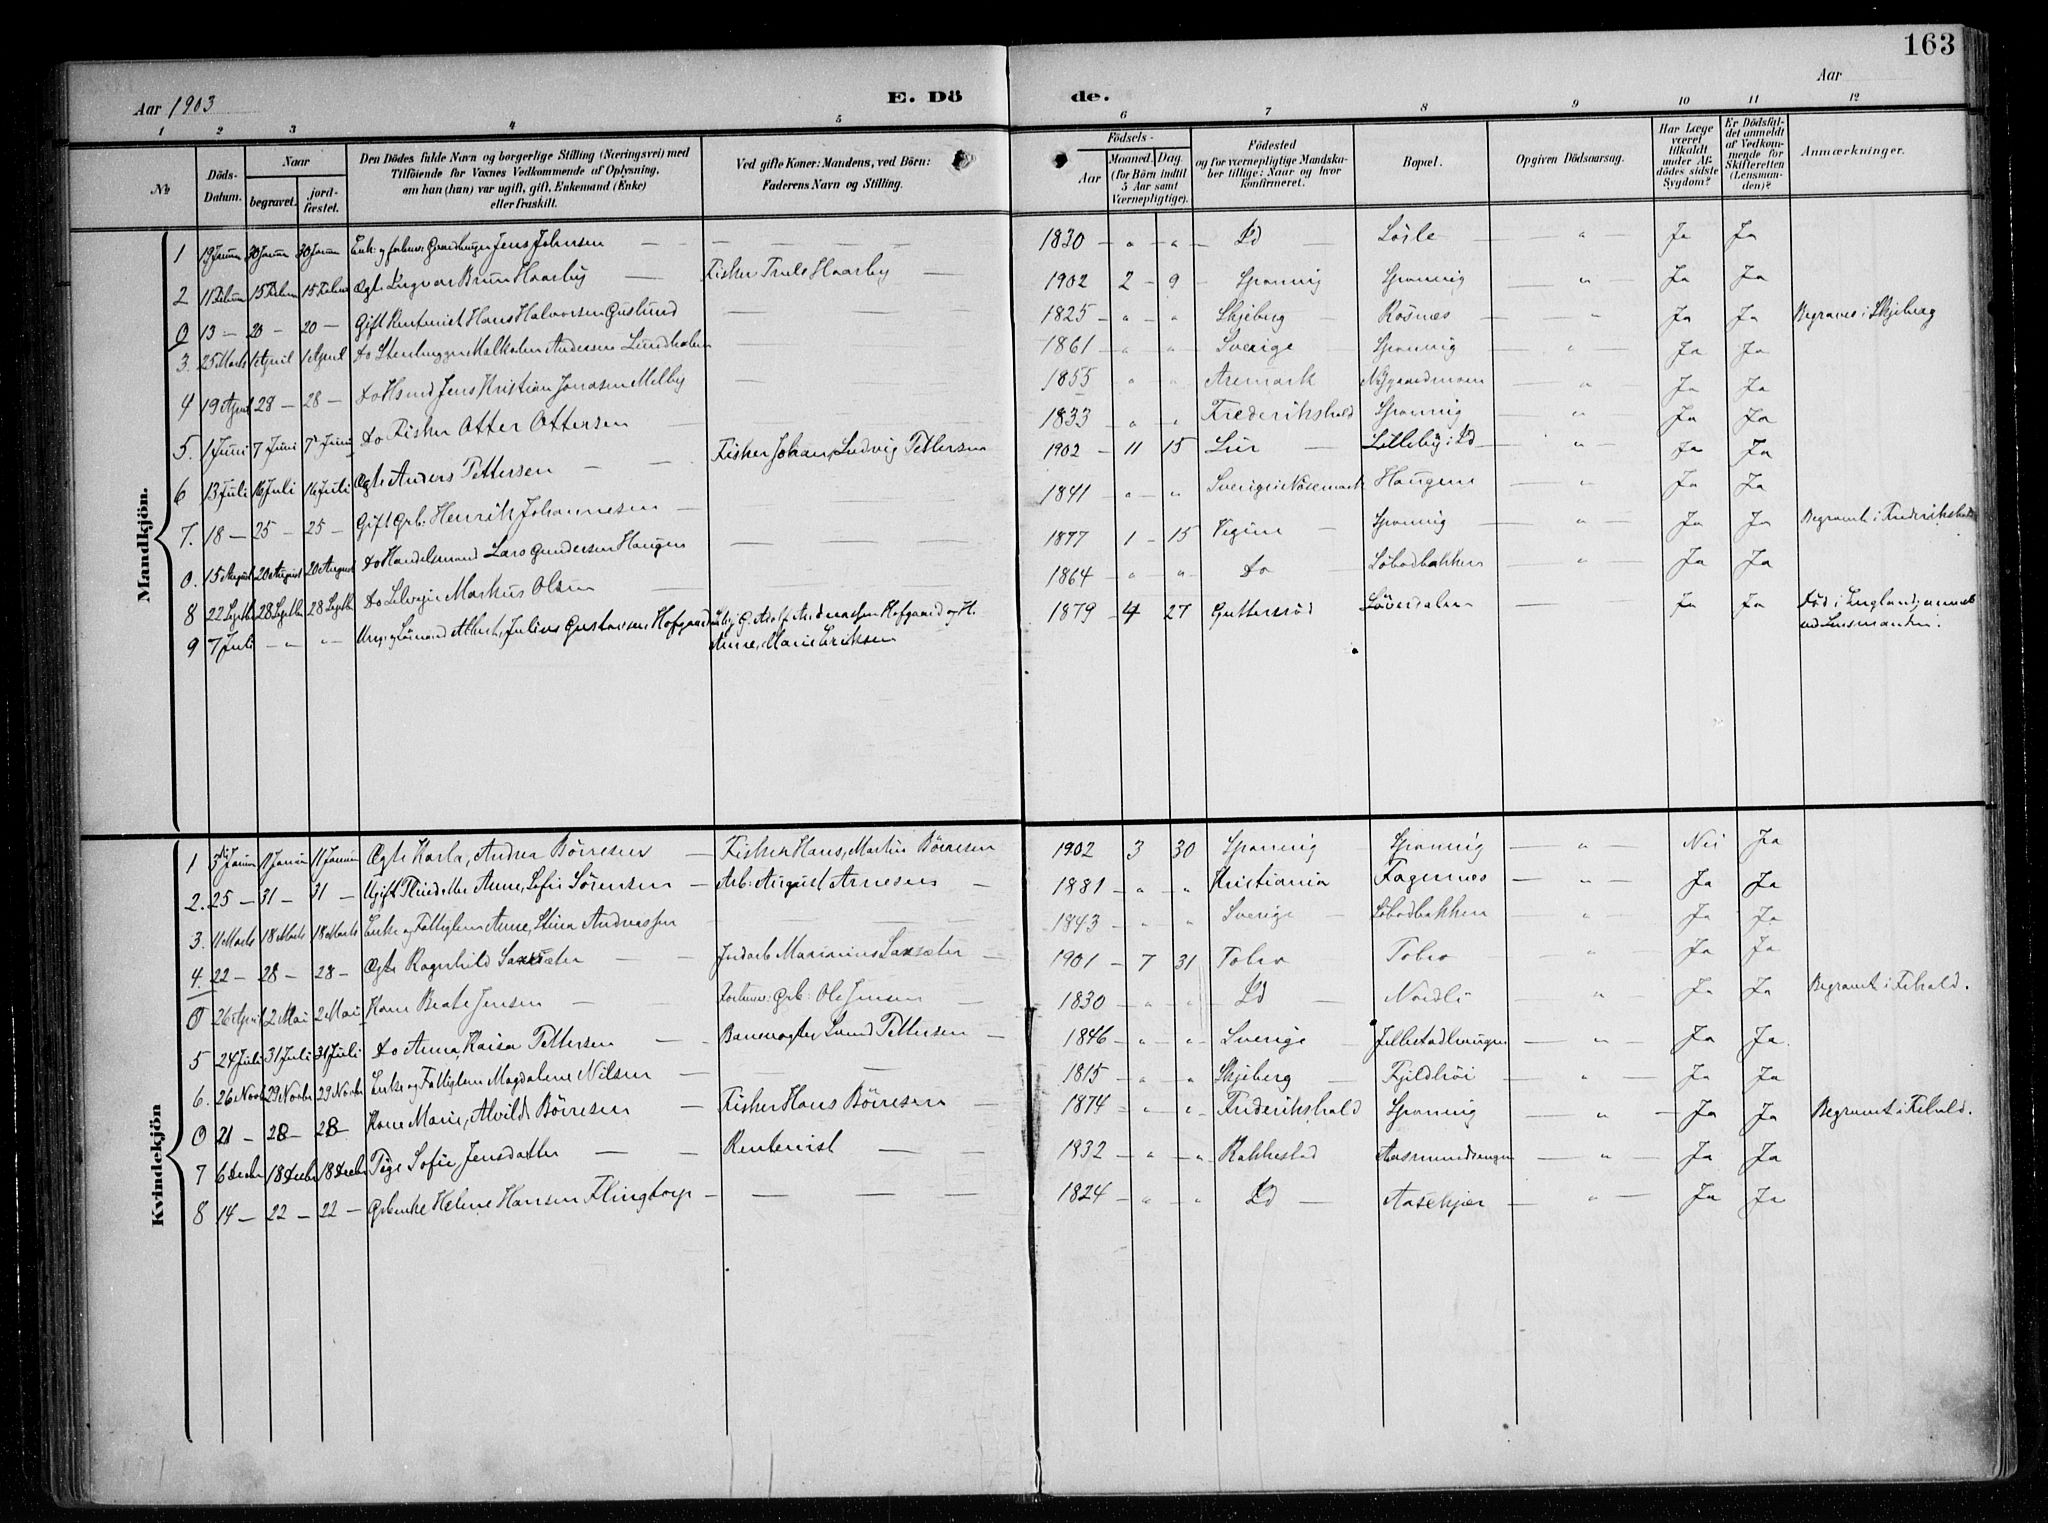 163
Aar 1903
E. Dö
de.
Aar
1 2 3 4 5 6 7 8 9 10 11 12
No
Döds-Datum.
Naar
begravet.
jord-fæstet.
Den Dödes fulde Navn og borgerlige Stilling (Næringsvei) med
Tilföiende for Voxnes Vedkommende af Oplysning,
om han (hun) var ugift, gift, Enkemand (Enke)
eller fraskilt.
Ved gifte Koner: Mandens, ved Börn:
Faderens Navn og Stilling.
Födsels-
Aar
Maaned. Dag.
(for Börn indtil
5 Aar samt
Værnepligtige).
Födested
og for værnepligtige Mandska-
ber tillige: Naar og hvor
konfirmeret.
Bopæl.
Opgiven Dödsaarsag.
Har Læge
været
tilkaldt
under Af-
dödes sidste
Sygdom?
Er Dödsfal-
det anmeldt
af Vedkom-
mende for
Skifteretten
(Lensman-
den)?
Anmærkninger.
Mandkjön.
1 19 Januar 30 Januar 30 Januar Jens Johnsen — — — 1830 — " — " — Id — — " — Ja Ja
2 11 Februar 15 Februar 15 Februar Ægte Ingvar Brun Haarby — Fisker Truls Haarby — 1902 — 2 — 9 — Sponvig Sponvig — " — Ja Ja
0 13 — 20 — 20 — Gift Rentenist Hans Halvorsen Guslund — — 1825 — " — " — Skjeberg — Rösnæs — " — Ja Ja Begravet i Skjeberg
3. 25 Marts 1 April 1 April Do Stenhugger Andersen Lundholm — — 1861 — " — " — Sverige — Sponvig — " — Ja Ja
4 19 April 28 — 28 — Do Husmd Jens Kristian Jonasen Melby — — 1855 — " — " — Aremark — " — Ja Ja
5. 1 Juni 7 Juni 7 Juni Do Fisker Otter Ottersen — — — 1833 — " — " Frederikshald Sponvig — " — Ja Ja
6 13 Juli 16 Juli 16 Juli Ægte Anders Pettersen — Fisker Johan Ludvig Pettersen 1902 — 11 — 15 — — Lilleby i Id — " — Ja Ja
7. 18 — 25 — 25 — Gift Grb. Henrik Johannesen — — — 1841 — " — " Sverige Nosemark Haugen — " — Ja Ja
0. 15 August 20 August 20 August Do Handelsmand Lars Gundersen Haugen — — 1877 — 1 — 15 — — Sponvig — " — Ja Ja Begravet i Frederikshald
8 22 Septbr 28 Septbr 28 Septbr Do Markus Olsen — — — 1864 — " — " — Do — Löbodbakken — " — Ja Ja
9 7 Juli — " — " — Albert, Julius Gustavsen Hofgaard Adolf Andreassen Hofgaard og H.
Anne, Marie Eriksen 1879 — 4 — 27 — — " — Ja Ja Död i England,
Kvindekjön
1 3die Januar 11 Januar 11 Januar Ægte Karla, Andrea Börresen — Fisker Hans, Martin Börresen 1902 3 30 — Sponvig — Sponvig — " — Nei Ja
2. 25 — 31 — 31 — Anne, Sofie Sörensen — Arb. August Arnesen — 1881 — " — " Kristiania — Fagernæs — " — Ja Ja
3. 11 Marts 18 Marts 18 Marts Enke og Fattiglem Anne, Stina Andreassen — — 1843 — " — " — Sverige — Löbodbakken — " — Ja Ja
4. 22 — 28 — 28 — Ægte Ragnhild — Marianius — 1901 — 7 — 31 — Tobro — Tobro — " — Ja Ja
0 26 April 2 Mai 2 Mai Kone Beate Jensen — — Grb. Ole Jensen — 1830 — " — " — Id — Nordli — " — Ja Ja Begravet i Frhald.
5 24 Juli 31 Juli 31 Juli Do Anna, Kaisa Pettersen — Banevogter Svend Pettersen — 1846 — " — " — Sverige — — " — Ja Ja.
6. 26 Novbr 29 Novbr 29 Novbr Enke og Fattiglem Magdalene Nilsen — — — 1815 — " — " Skjeberg — — " — Ja Ja
0 21 — 28 — 28 — Kone Marie, Alvilde Börresen — Fisker Hans Börresen — 1874 — " — " — Frederikshald — Sponvig — " — Ja Ja Begravet i Frhald.
7 6 Decbr 18 Decbr 18 Decbr Pige Sofie, Jensdatter — — Rentenist — 1832 — " — " — Rakkestad — Aasmundsengen — " — Ja Ja
8 14 — 22 — 22 — Grbenke Helene Hansen Flingtorp — — — 1824 — " — " — Id — Aasekjær — " — Ja Ja